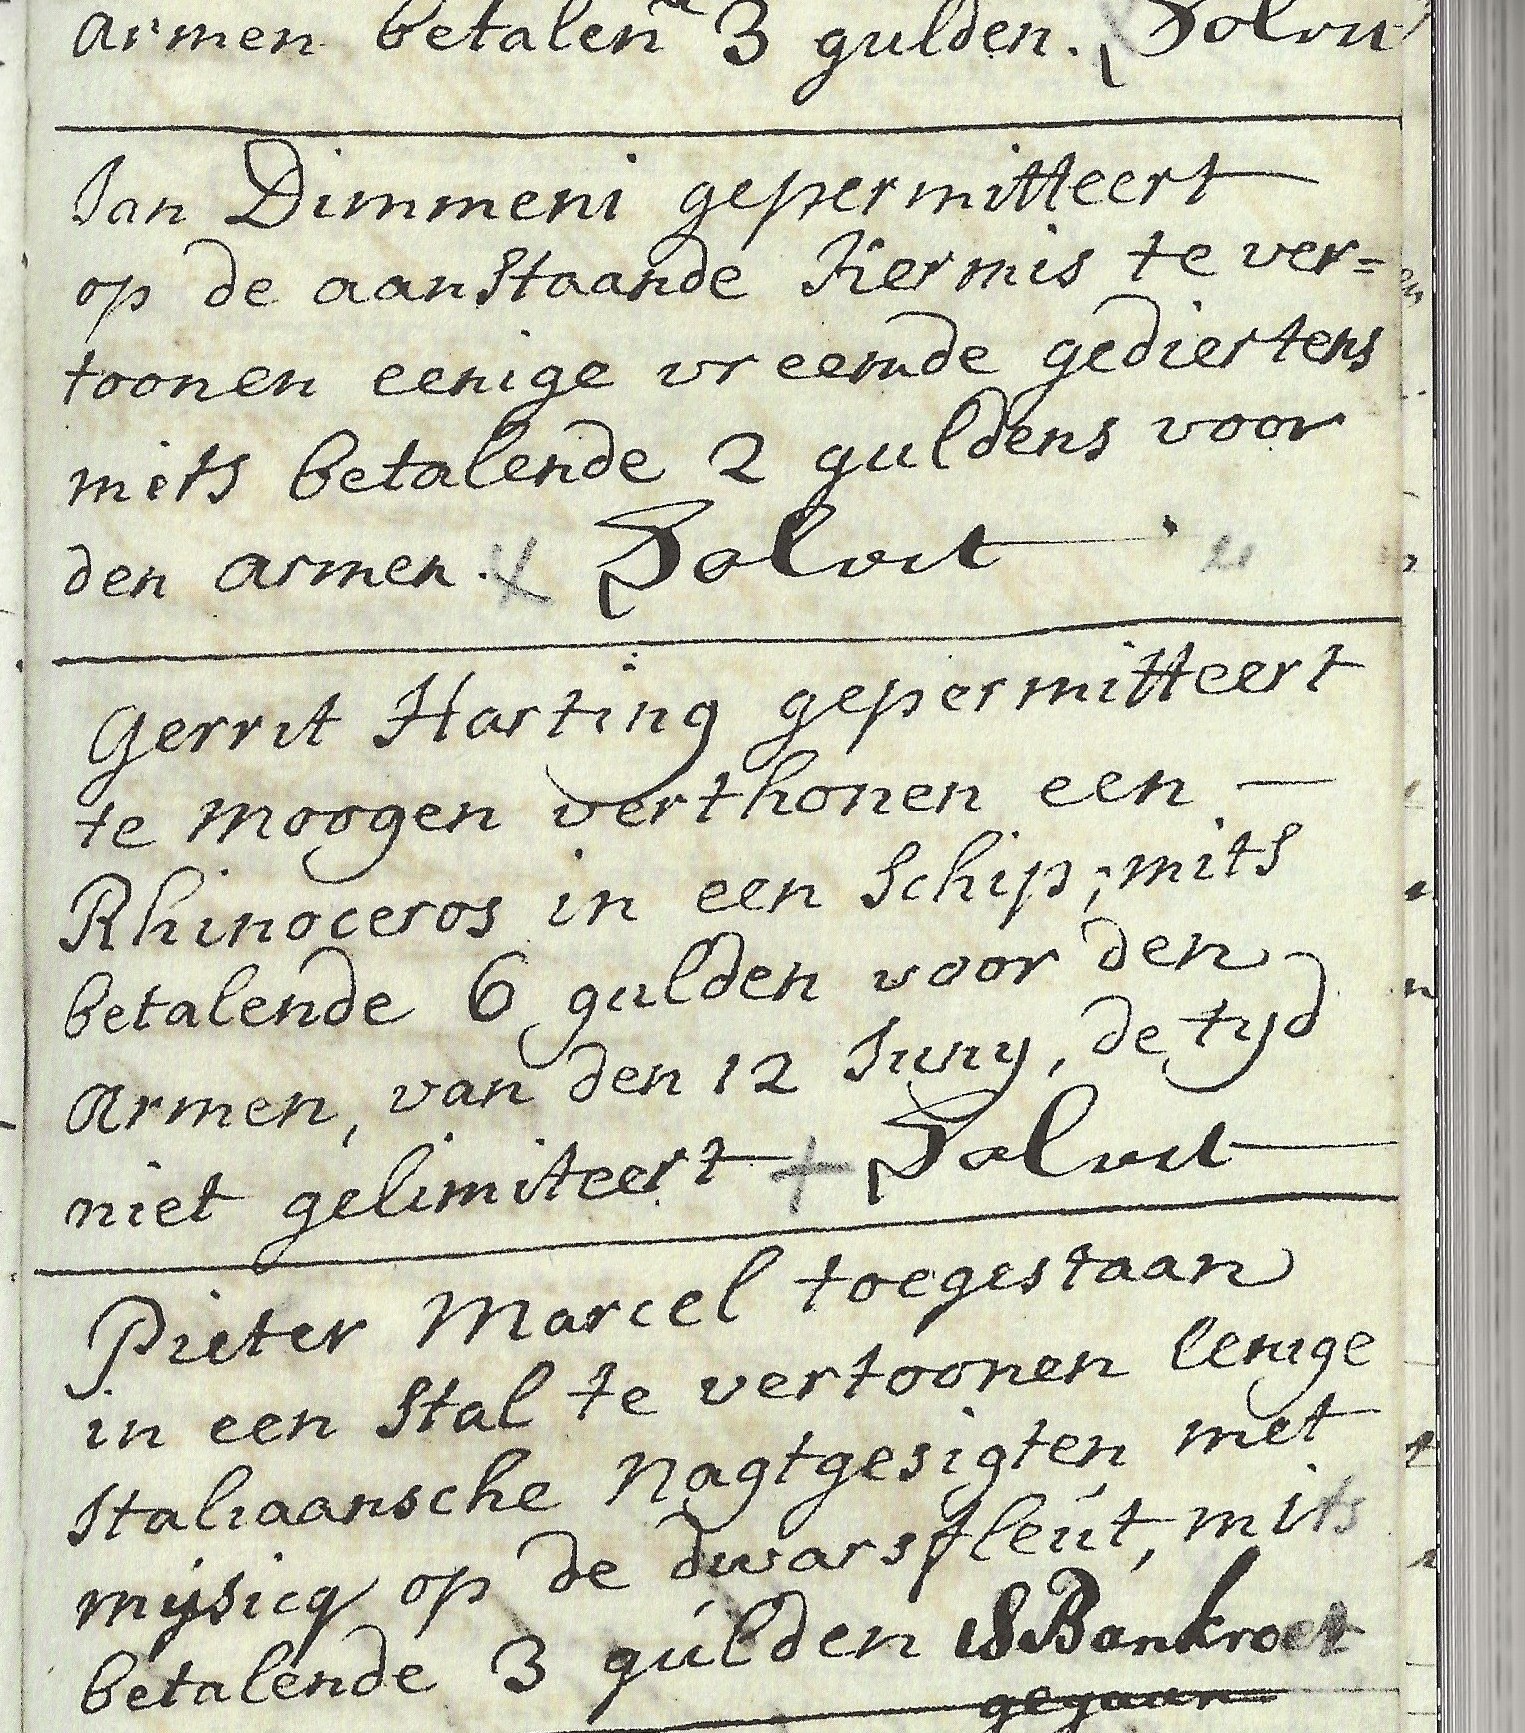 armen betalen 3 gulden. Solvit
Jan Dimmeni gepermitteert
op de aanstaande Kermis te ver=
toonen eenige vreemde gediertens
mits betalende 2 guldens voor
den armen. Solvit
Gerrit Harting gepermitteert
te moogen verthonen een —
Rhinoceros in een Schip; mits
betalende 6 gulden voor den
armen, van den 12 Juny, de tyd
niet gelimiteert Solvit
Pieter Marcel toegestaan
in een Stal te vertoonen Eenige
Italiaansche Nagtgesigten met
mysicq op de dwarsfleut, mits
betalende 3 gulden is Bankroet
gegaan